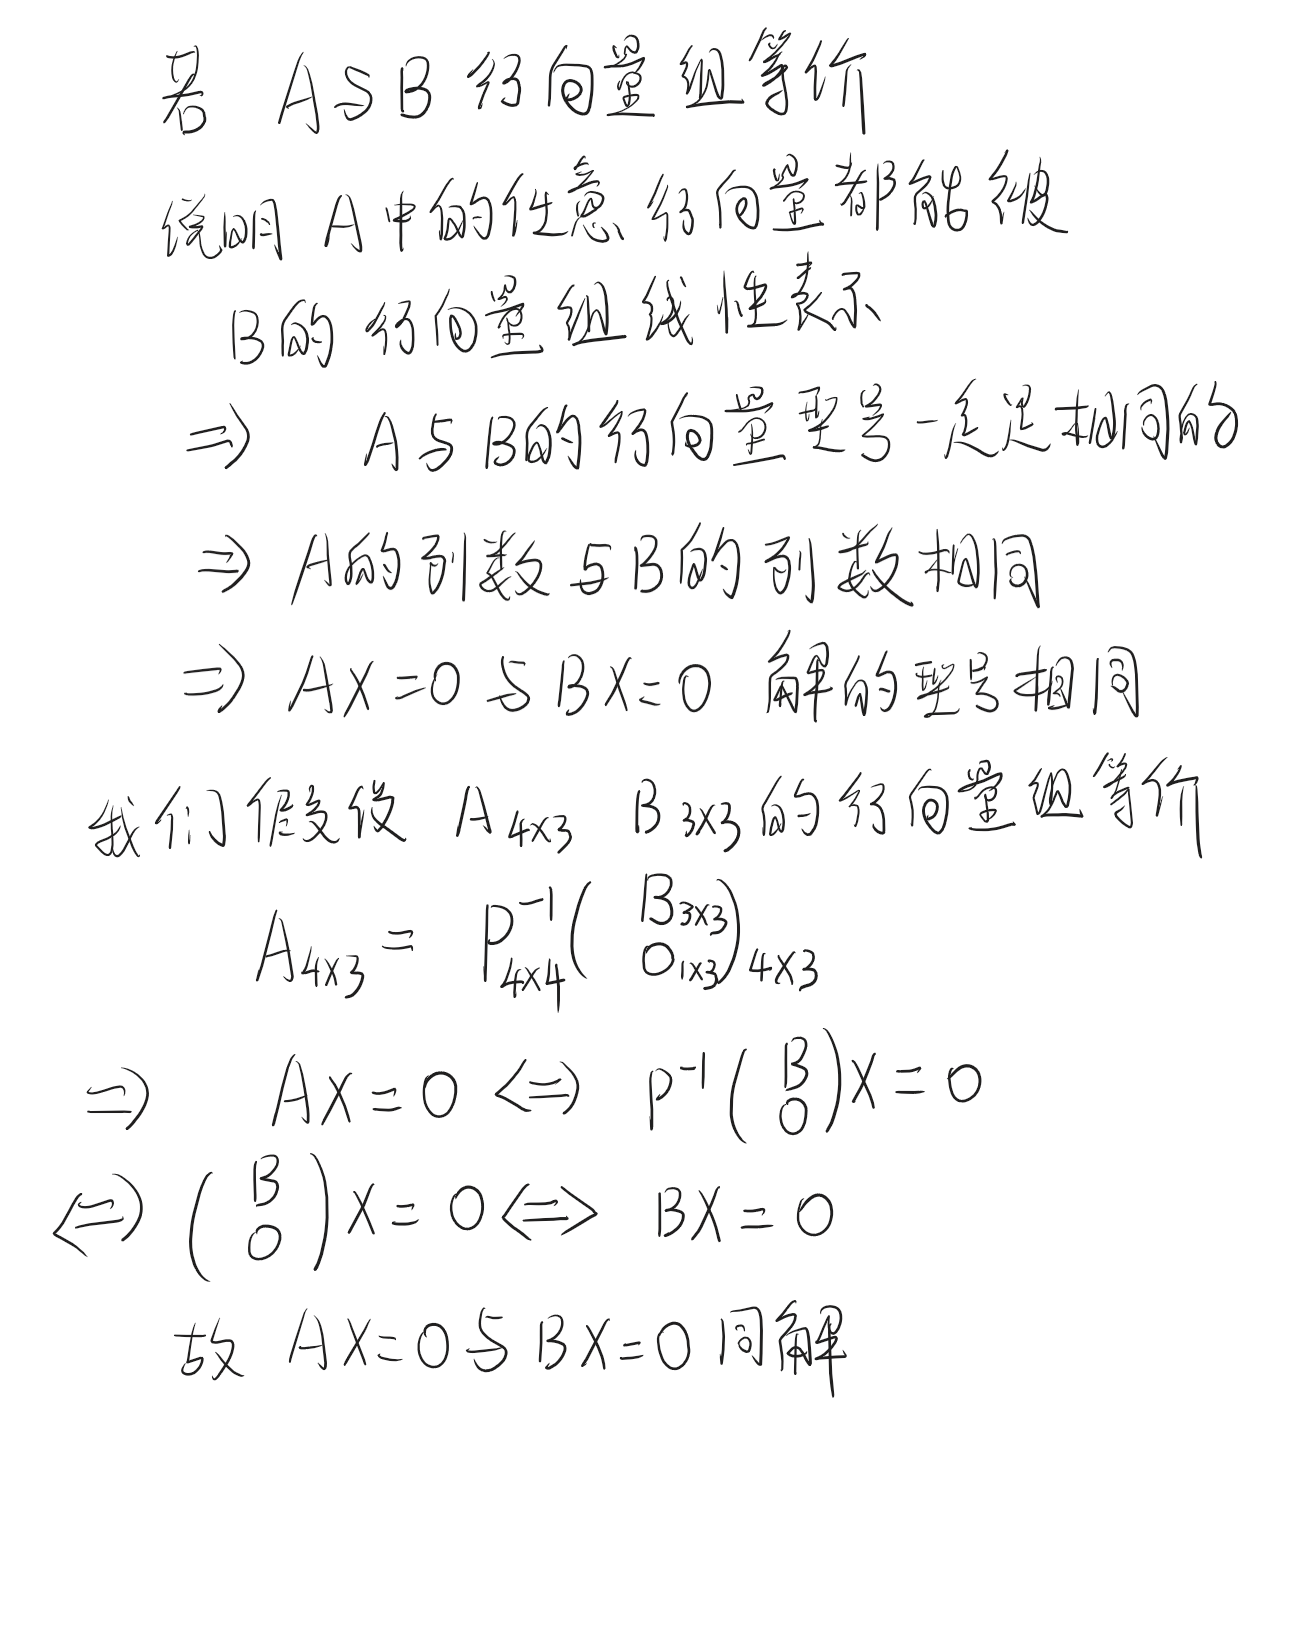 若 A与B 行向量组等价
说明 A中的任意行向量都能被
B的行向量组线性表示
⇒ A与B的行向量型号一定是相同的
⇒ A的列数与B的列数相同
⇒ AX=0与BX=0 解的型号相同
我们假设 A₄ₓ₃ B₃ₓ₃的行向量组等价
A₄ₓ₃ = P⁻¹₄ₓ₄ ( B₃ₓ₃ / O₁ₓ₃ )₄ₓ₃
⇒ AX=0 ⇔ P⁻¹ ( B / O ) X=0
⇔ ( B / O ) X=0 ⇔ BX=0
故 AX=0与BX=0同解